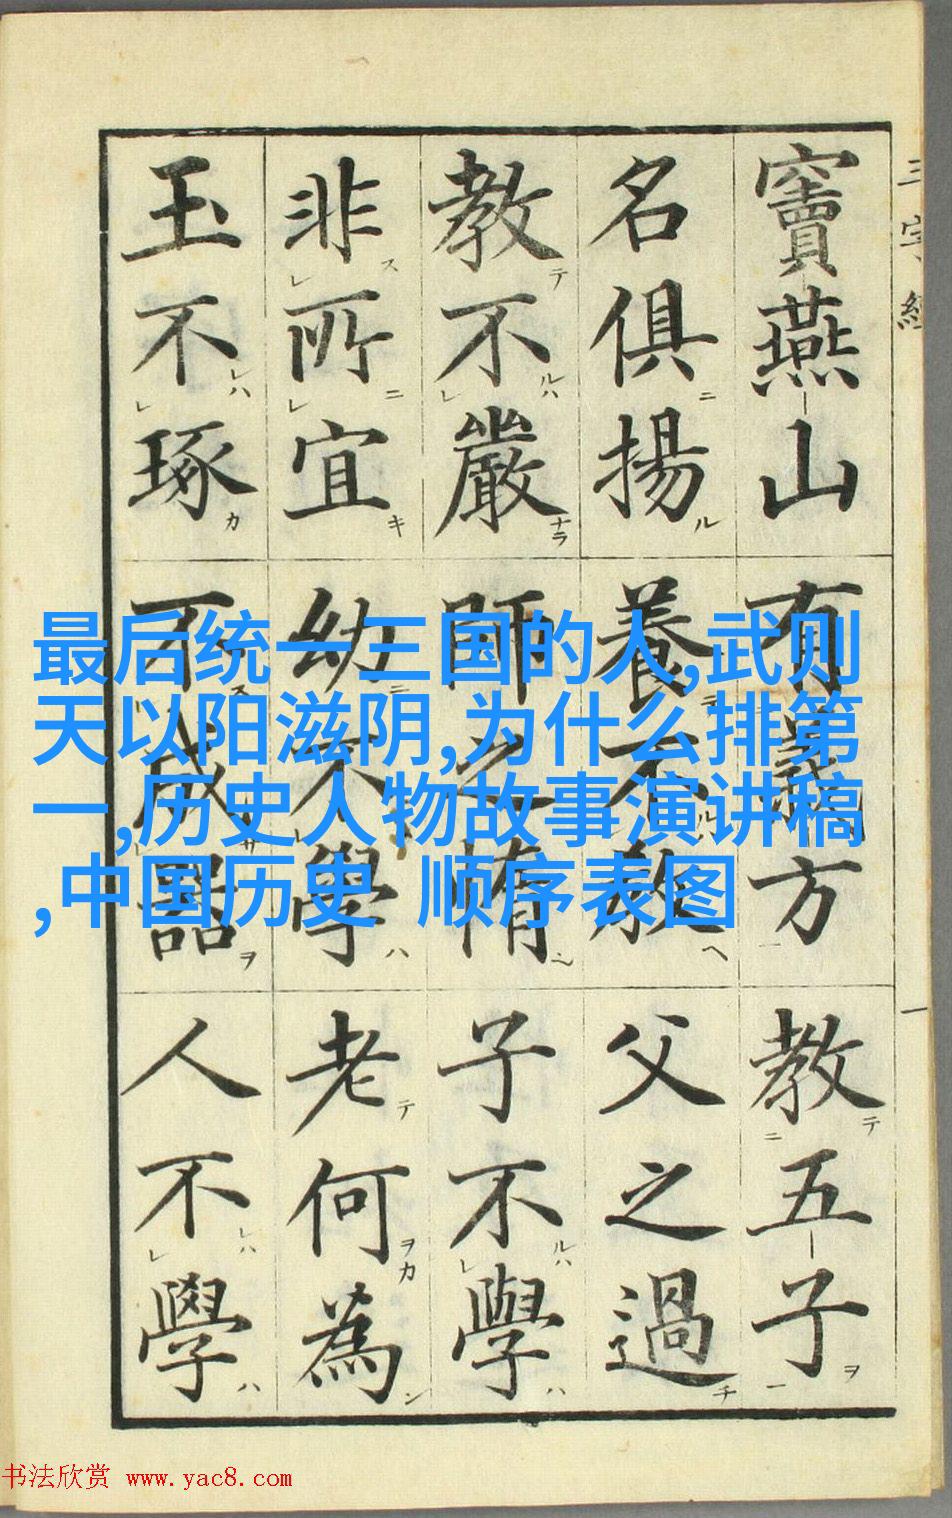 三字經
一
竇燕山有義方教五子
名俱揚養不教父之過
教不嚴師之惰子不學
非所宜幼不學老何為
玉不琢不成器人不學
最后统一三国的人,武则
天以阳滋阴,为什么排第
一,历史人物故事演讲稿
,中国历史 顺序表图
书法欣赏 www.yac8.com